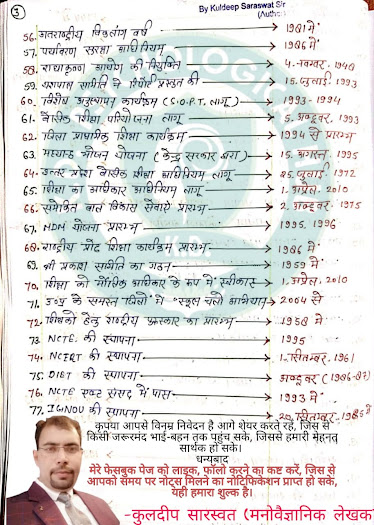 3
By Kuldeep Saraswat Sir
(Author)
56. अन्तराष्ट्रीय विकलांग वर्ष → 1981 में
57. पर्यावरण सुरक्षा अधिनियम → 1986 में
58. राधाकृष्ण आयोग की नियुक्ति → 4. नवम्बर. 1948
59. यशपाल समिति ने रिपोर्ट प्रस्तुत की → 15. जुलाई. 1993
60. विशेष अनुस्थापन कार्यक्रम (S.O.P.T. लागू) → 1993-1994
61. बेसिक शिक्षा परियोजना लागू → 5. अक्टूबर. 1993
62. जिला प्राथमिक शिक्षा कार्यक्रम → 1994 से प्रारम्भ
63. मध्याह्न भोजन योजना (केन्द्र सरकार द्वारा) → 15. अगस्त. 1995
64. उत्तर प्रदेश बेसिक शिक्षा अधिनियम लागू → 25. जुलाई. 1972
65. शिक्षा का अधिकार अधिनियम लागू → 1. अप्रैल. 2010
66. समेकित बाल विकास सेवाएं प्रारम्भ → 2. अक्टूबर. 1975
67. MDM योजना प्रारम्भ → 1995, 1996
68. राष्ट्रीय प्रौढ़ शिक्षा कार्यक्रम प्रारम्भ → 1986 में
69. श्री प्रकाश समिति का गठन → 1959 में
70. शिक्षा को मौलिक अधिकार के रूप में स्वीकार → 1. अप्रैल. 2010
71. उ०प्र० के समस्त जिलों में "स्कूल चलो अभियान" → 2004 से
72. शिक्षकों हेतु राष्ट्रीय पुरस्कार का प्रारम्भ → 1958 में
73. NCTE. की स्थापना → 1995
74. NCERT की स्थापना → 1. सितम्बर. 1961
75. DIET की स्थापना → अक्टूबर (1986-87)
76. NCTE एक्ट संसद में पास → 1993 में
77. IGNOU की स्थापना → 20. सितम्बर. 1985 में
कृपया आपसे विनम्र निवेदन है आगे शेयर करते रहें, जिस से
किसी जरूरमंद भाई-बहन तक पहुंच सके, जिससे हमारी मेहनत
सार्थक हो सके।
धन्यबाद
मेरे फेसबुक पेज को लाइक, फॉलो करने का कष्ट करें, जिस से
आपको समय पर नोट्स मिलने का नोटिफिकेशन प्राप्त हो सके,
यही हमारा शुल्क है।
-कुलदीप सारस्वत (मनोवैज्ञानिक लेखक)